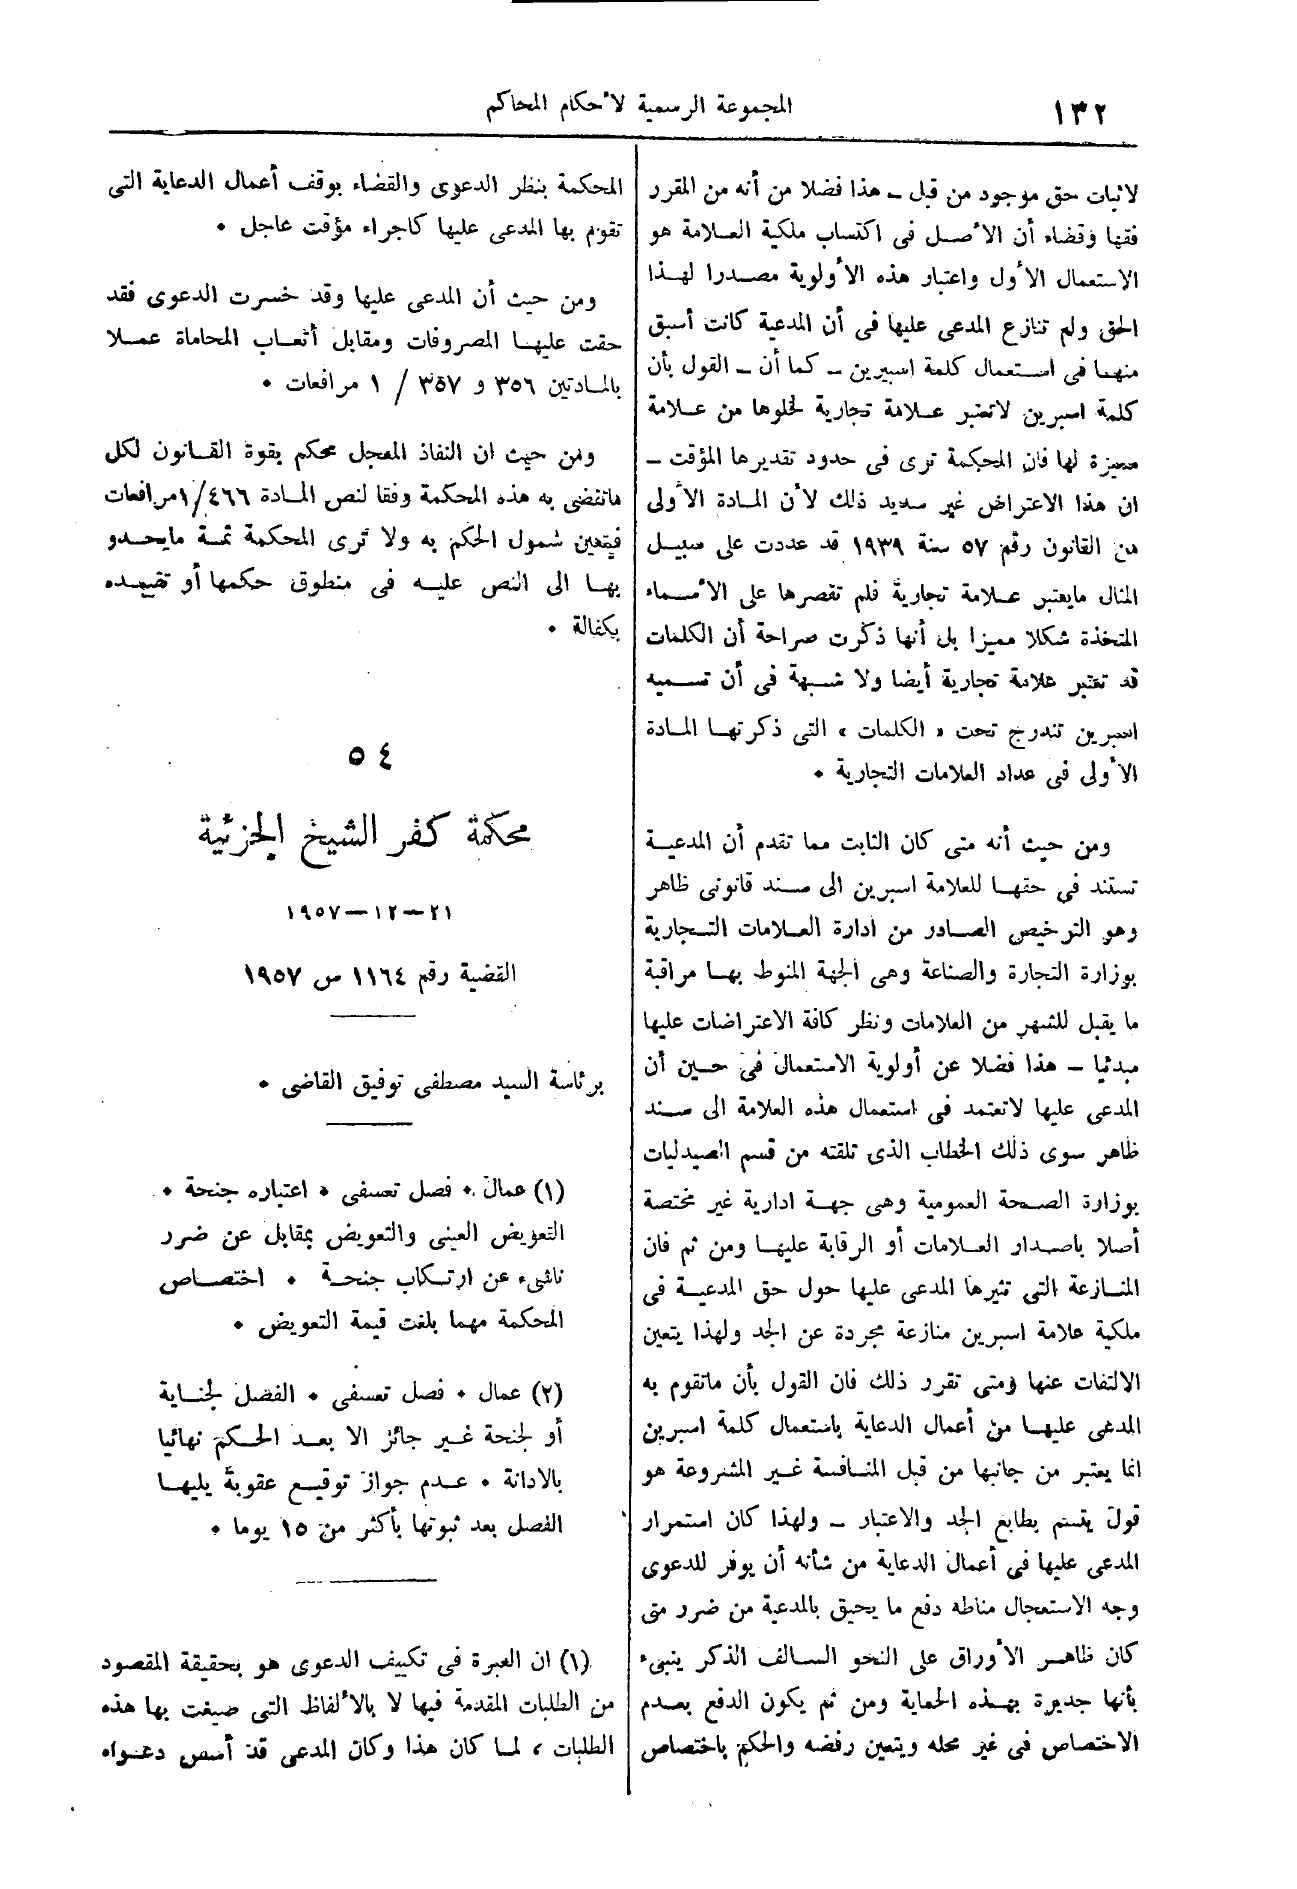 ١٣٢
المجموعة الرسمية لأحكام المحاكم
لاثبات حق موجود من قبل ــ هذا فضلا من أنه من المقرر
فقها وقضاء أن الأصل فى اكتساب ملكية العلامة هو
الاستعمال الأول واعتبار هذه الأولوية مصدرا لهذا
الحق ولم تنازع المدعى عليها فى أن المدعية كانت أسبق
منها فى استعمال كلمة اسبرين ــ كما أن ــ القول بأن
كلمة اسبرين لاتعتبر علامة تجارية لخلوها من علامة
مميزة لها فان المحكمة ترى فى حدود تقديرها المؤقت ــ
ان هذا الاعتراض غير سديد ذلك لأن المادة الأولى
من القانون رقم ٥٧ سنة ١٩٣٩ قد عددت على سبيل
المثال مايعتبر علامة تجارية فلم تقصرها على الأسماء
المتخذة شكلا مميزا بل أنها ذكرت صراحة أن الكلمات
قد تعتبر علامة تجارية أيضا ولا شبهة فى أن تسميه
اسبرين تندرج تحت « الكلمات » التى ذكرتها المادة
الأولى فى عداد العلامات التجارية ٠
ومن حيث أنه متى كان الثابت مما تقدم أن المدعية
تستند فى حقها للعلامة اسبرين الى سند قانونى ظاهر
وهو الترخيص الصادر من ادارة العلامات التجارية
بوزارة التجارة والصناعة وهى الجهة المنوط بها مراقبة
ما يقبل للشهر من العلامات ونظر كافة الاعتراضات عليها
مبدئيا ــ هذا فضلا عن أولوية الاستعمال فى حين أن
المدعى عليها لاتعتمد فى استعمال هذه العلامة الى سند
ظاهر سوى ذلك الخطاب الذى تلقته من قسم الصيدليات
بوزارة الصحة العمومية وهى جهة ادارية غير مختصة
أصلا باصدار العلامات أو الرقابة عليها ومن ثم فان
المنازعة التى تثيرها المدعى عليها حول حق المدعية فى
ملكية علامة اسبرين منازعة مجردة عن الجد ولهذا يتعين
الالتفات عنها ومتى تقرر ذلك فان القول بأن ماتقوم به
المدعى عليها من أعمال الدعاية باستعمال كلمة اسبرين
انما يعتبر من جانبها من قبل المنافسة غير المشروعة هو
قول يتسم بطابع الجد والاعتبار ــ ولهذا كان استمرار
المدعى عليها فى أعمال الدعاية من شأنه أن يوفر للدعوى
وجه الاستعجال مناطه دفع ما يحيق بالمدعية من ضرر متى
كان ظاهر الأوراق على النحو السالف الذكر ينبىء
بأنها جديرة بهذه الحماية ومن ثم يكون الدفع بعدم
الاختصاص فى غير محله ويتعين رفضه والحكم باختصاص
المحكمة بنظر الدعوى والقضاء بوقف أعمال الدعاية التى
تقوم بها المدعى عليها كاجراء مؤقت عاجل ٠
ومن حيث أن المدعى عليها وقد خسرت الدعوى فقد
حقت عليها المصروفات ومقابل أتعاب المحاماة عملا
بالمادتين ٣٥٦ و ٣٥٧ / ١ مرافعات ٠
ومن حيث ان النفاذ المعجل محكم بقوة القانون لكل
ماتقضى به هذه المحكمة وفقا لنص المادة ١/٤٦٦مرافعات
فيتعين شمول الحكم به ولا ترى المحكمة ثمة مايحدو
بها الى النص عليه فى منطوق حكمها أو تقييده
بكفالة ٠
٥٤
محكمة كفر الشيخ الجزئية
٢١ــ١٢ــ١٩٥٧
القضية رقم ١١٦٤ س ١٩٥٧
برئاسة السيد مصطفى توفيق القاضى ٠
(١) عمال ٠ فصل تعسفى ٠ اعتباره جنحة ٠
التعويض العينى والتعويض بمقابل عن ضرر
ناشىء عن ارتكاب جنحة ٠ اختصاص
المحكمة مهما بلغت قيمة التعويض ٠
(٢) عمال ٠ فصل تعسفى ٠ الفصل لجناية
أو لجنحة غير جائز الا بعد الحكم نهائيا
بالادانة ٠ عدم جواز توقيع عقوبة يليها
الفصل بعد ثبوتها بأكثر من ١٥ يوما ٠
(١) ان العبرة فى تكييف الدعوى هو بحقيقة المقصود
من الطلبات المقدمة فيها لا بالألفاظ التى صيغت بها هذه
الطلبات ، لما كان هذا وكان المدعى قد أسس دعواه